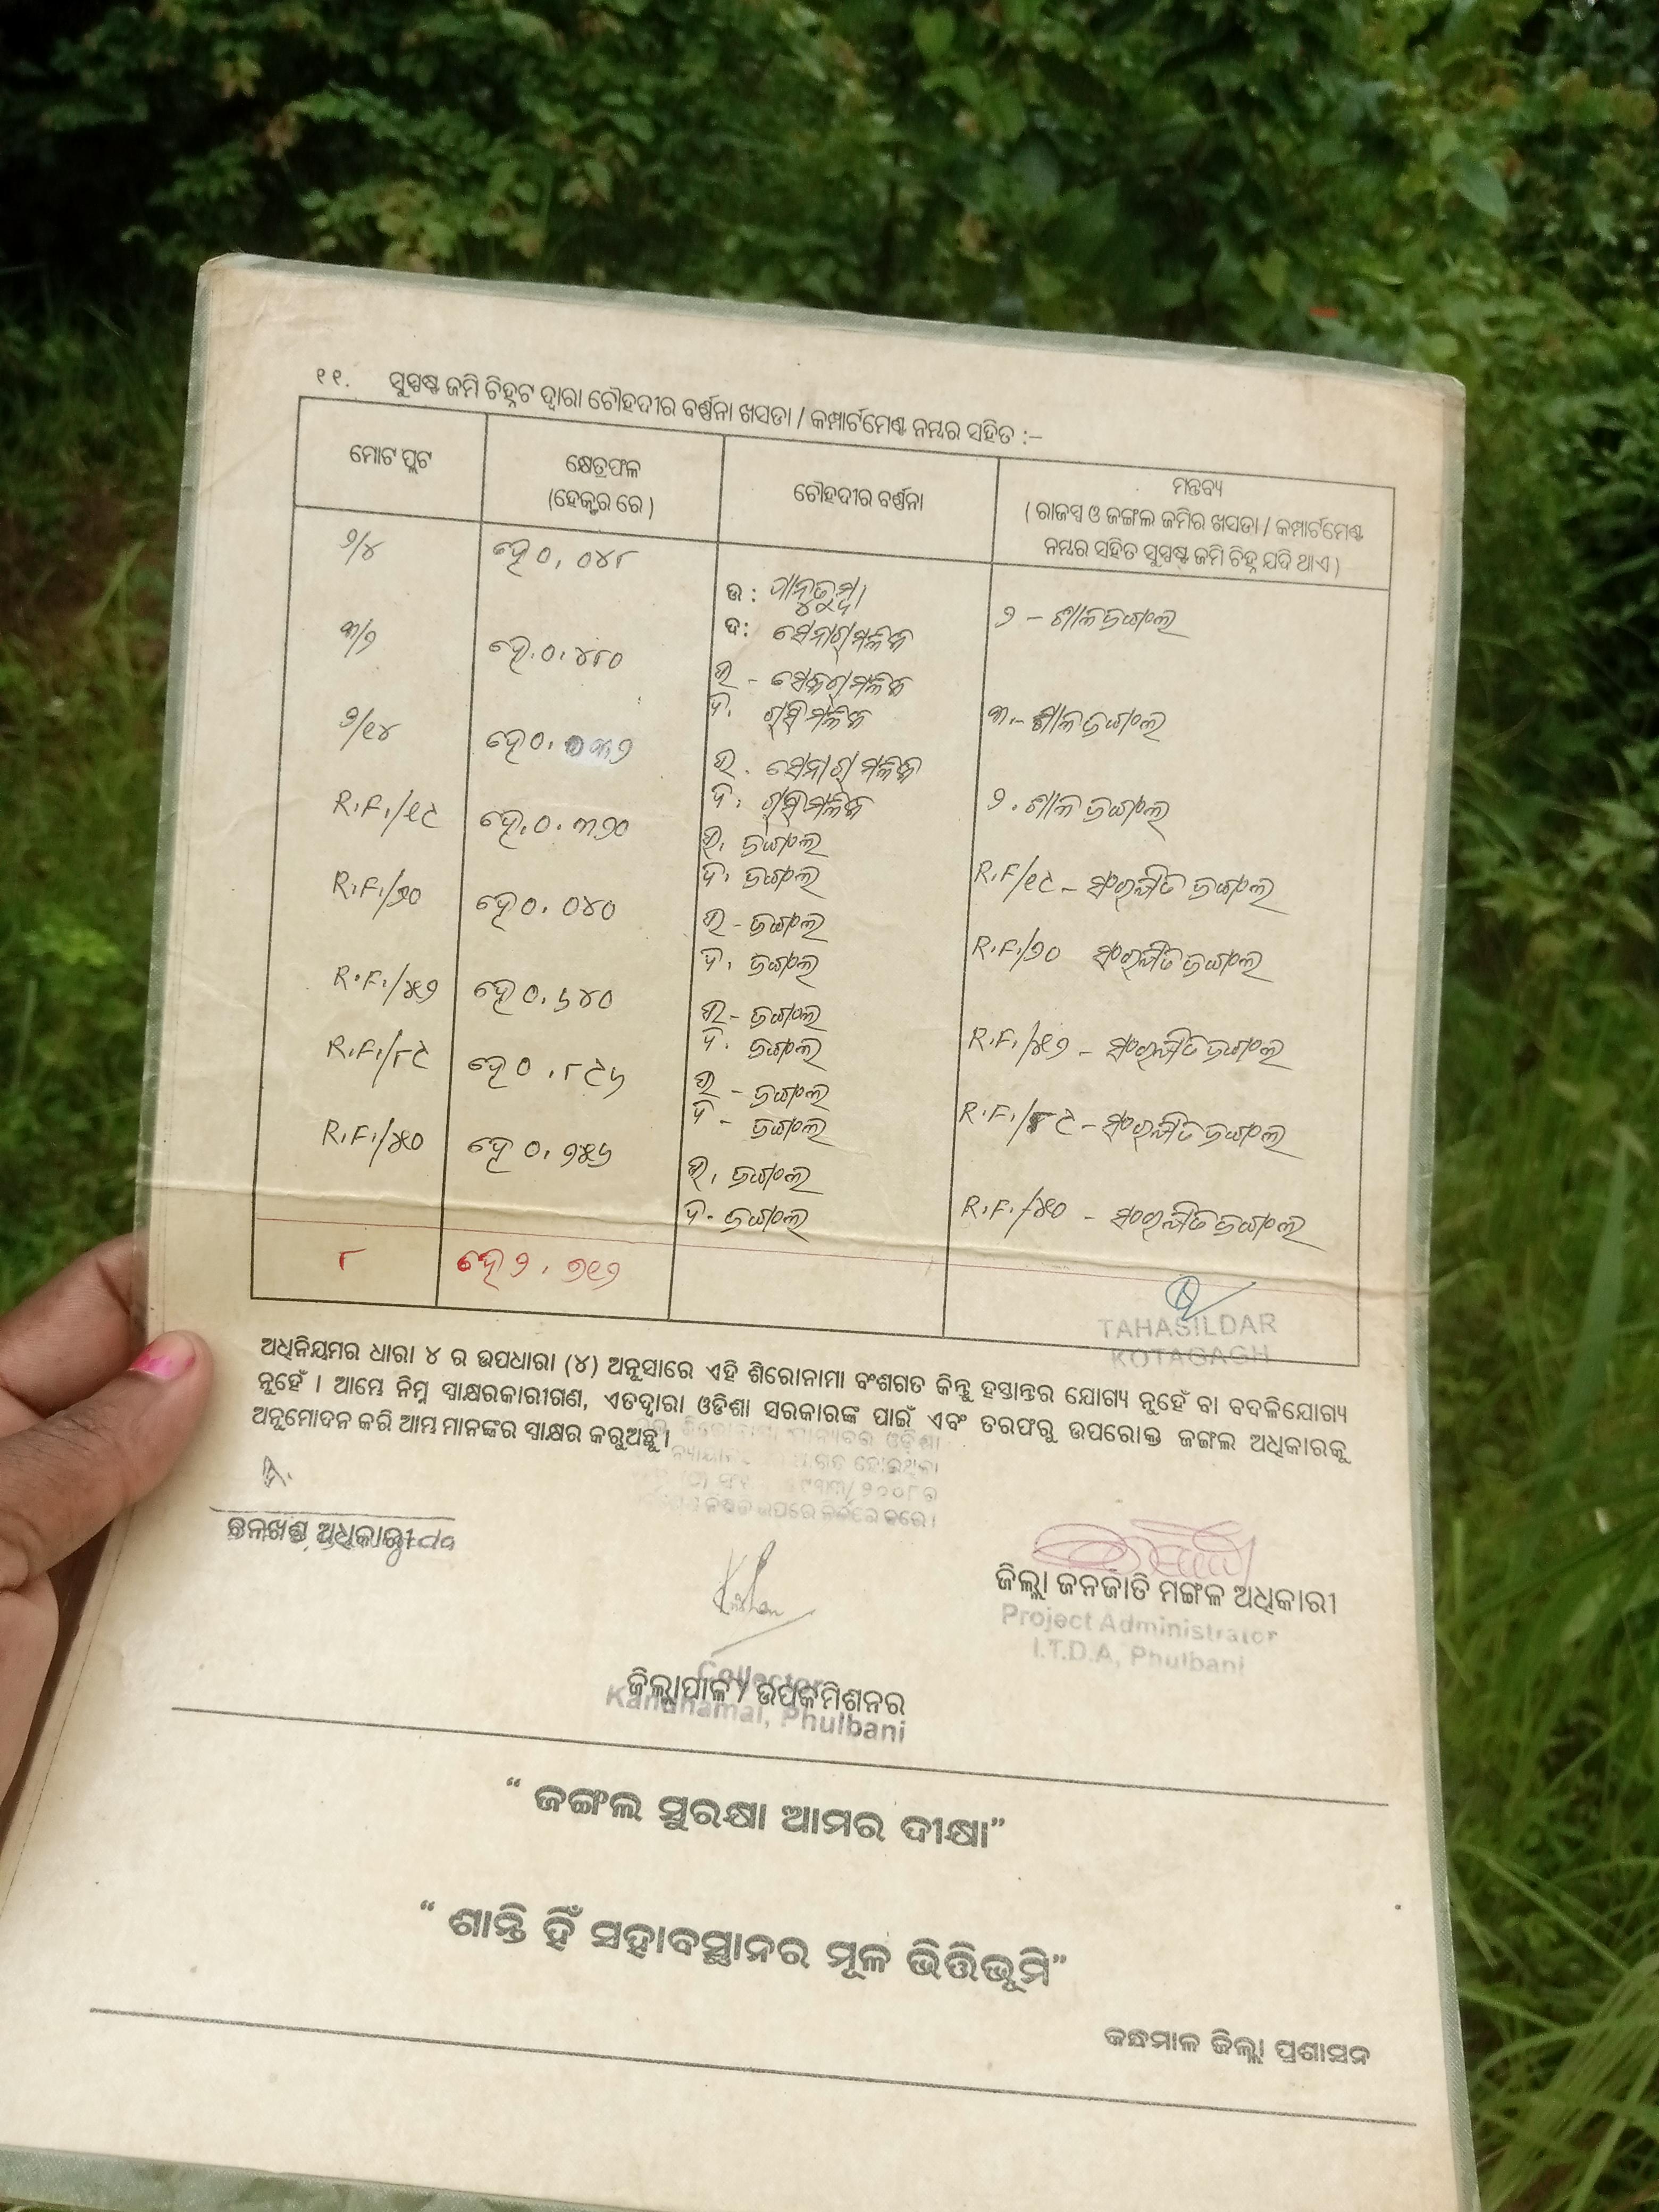 ୧୧. ସୁସ୍ପଷ୍ଟ ଜମି ଚିହ୍ନଟ ଦ୍ୱାରା ଚୌହଦୀର ବର୍ଣ୍ଣନା ଖସଡା / କମ୍ପାର୍ଟମେଣ୍ଟ ନମ୍ବର ସହିତ :-
ମୋଟ ପ୍ଲଟ
କ୍ଷେତ୍ରଫଳ
(ହେକ୍ଟର ରେ )
ଚୌହଦୀର ବର୍ଣ୍ଣନା
ମନ୍ତବ୍ୟ
( ରାଜସ୍ୱ ଓ ଜଙ୍ଗଲ ଜମିର ଖସଡା / କମ୍ପାର୍ଟମେଣ୍ଟ
ନମ୍ବର ସହିତ ସୁସ୍ପଷ୍ଟ ଜମି ଚିହ୍ନ ଯଦି ଥାଏ )
୨/୪ ହେ ୦. ୦୪୮
ଉ :
ଦ:
୨ - ଶାଳ ଜଙ୍ଗଲ
୩/୨ ହେ.୦.୪୮୦
ଉ -
ଦ.
୩.- ଶାଳ ଜଙ୍ଗଲ
୨/୧୪ ହେ ୦. ୦୩୨
ଉ.
ଦ.
୨. ଶାଳ ଜଙ୍ଗଲ
R.F./୧୯ ହେ.୦.୩୨୦
ଉ. ଜଙ୍ଗଲ
ଦ. ଜଙ୍ଗଲ
R.F/୧୯ - ସଂରକ୍ଷିତ ଜଙ୍ଗଲ
R.F./୨୦ ହେ ୦. ୦୪୦
ଉ - ଜଙ୍ଗଲ
ଦ. ଜଙ୍ଗଲ
R.F./୨୦ ସଂରକ୍ଷିତ ଜଙ୍ଗଲ
R.F./୪୨ ହେ ୦.୬୪୦
ଉ - ଜଙ୍ଗଲ
ଦ. ଜଙ୍ଗଲ
R.F./୪୨ - ସଂରକ୍ଷିତ ଜଙ୍ଗଲ
R.F./୮୯ ହେ ୦.୮୯୬
ଉ - ଜଙ୍ଗଲ
ଦ - ଜଙ୍ଗଲ
R.F./୮୯ - ସଂରକ୍ଷିତ ଜଙ୍ଗଲ
R.F./୪୦ ହେ ୦.୨୫୬
ଉ. ଜଙ୍ଗଲ
ଦ. ଜଙ୍ଗଲ
R.F./୪୦ - ସଂରକ୍ଷିତ ଜଙ୍ଗଲ
୮ ହେ ୨. ୭୧୨
TAHASILDAR
KOTAGAGH
ଅଧିନିୟମର ଧାରା ୪ ର ଉପଧାରା (୪) ଅନୁସାରେ ଏହି ଶିରୋନାମା ବଂଶଗତ କିନ୍ତୁ ହସ୍ତାନ୍ତର ଯୋଗ୍ୟ ନୁହେଁ ବା ବଦଳିଯୋଗ୍ୟ
ନୁହେଁ । ଆମ୍ଭେ ନିମ୍ନ ସ୍ୱାକ୍ଷରକାରୀଗଣ, ଏତଦ୍ୱାରା ଓଡିଶା ସରକାରଙ୍କ ପାଇଁ ଏବଂ ତରଫରୁ ଉପରୋକ୍ତ ଜଙ୍ଗଲ ଅଧିକାରକୁ
ଅନୁମୋଦନ କରି ଆମ୍ଭ ମାନଙ୍କର ସ୍ୱାକ୍ଷର କରୁଅଛୁ ।
ବନଖଣ୍ଡ ଅଧିକାରୀ
ଜିଲ୍ଲା ଜନଜାତି ମଙ୍ଗଳ ଅଧିକାରୀ
Project Administrator
I.T.D.A, Phulbani
Collector
ଜିଲ୍ଲାପାଳ / ଉପକମିଶନର
Kandhamal, Phulbani
“ ଜଙ୍ଗଲ ସୁରକ୍ଷା ଆମର ଦୀକ୍ଷା”
“ ଶାନ୍ତି ହିଁ ସହାବସ୍ଥାନର ମୂଳ ଭିତ୍ତିଭୂମି”
କନ୍ଧମାଳ ଜିଲ୍ଲା ପ୍ରଶାସନ